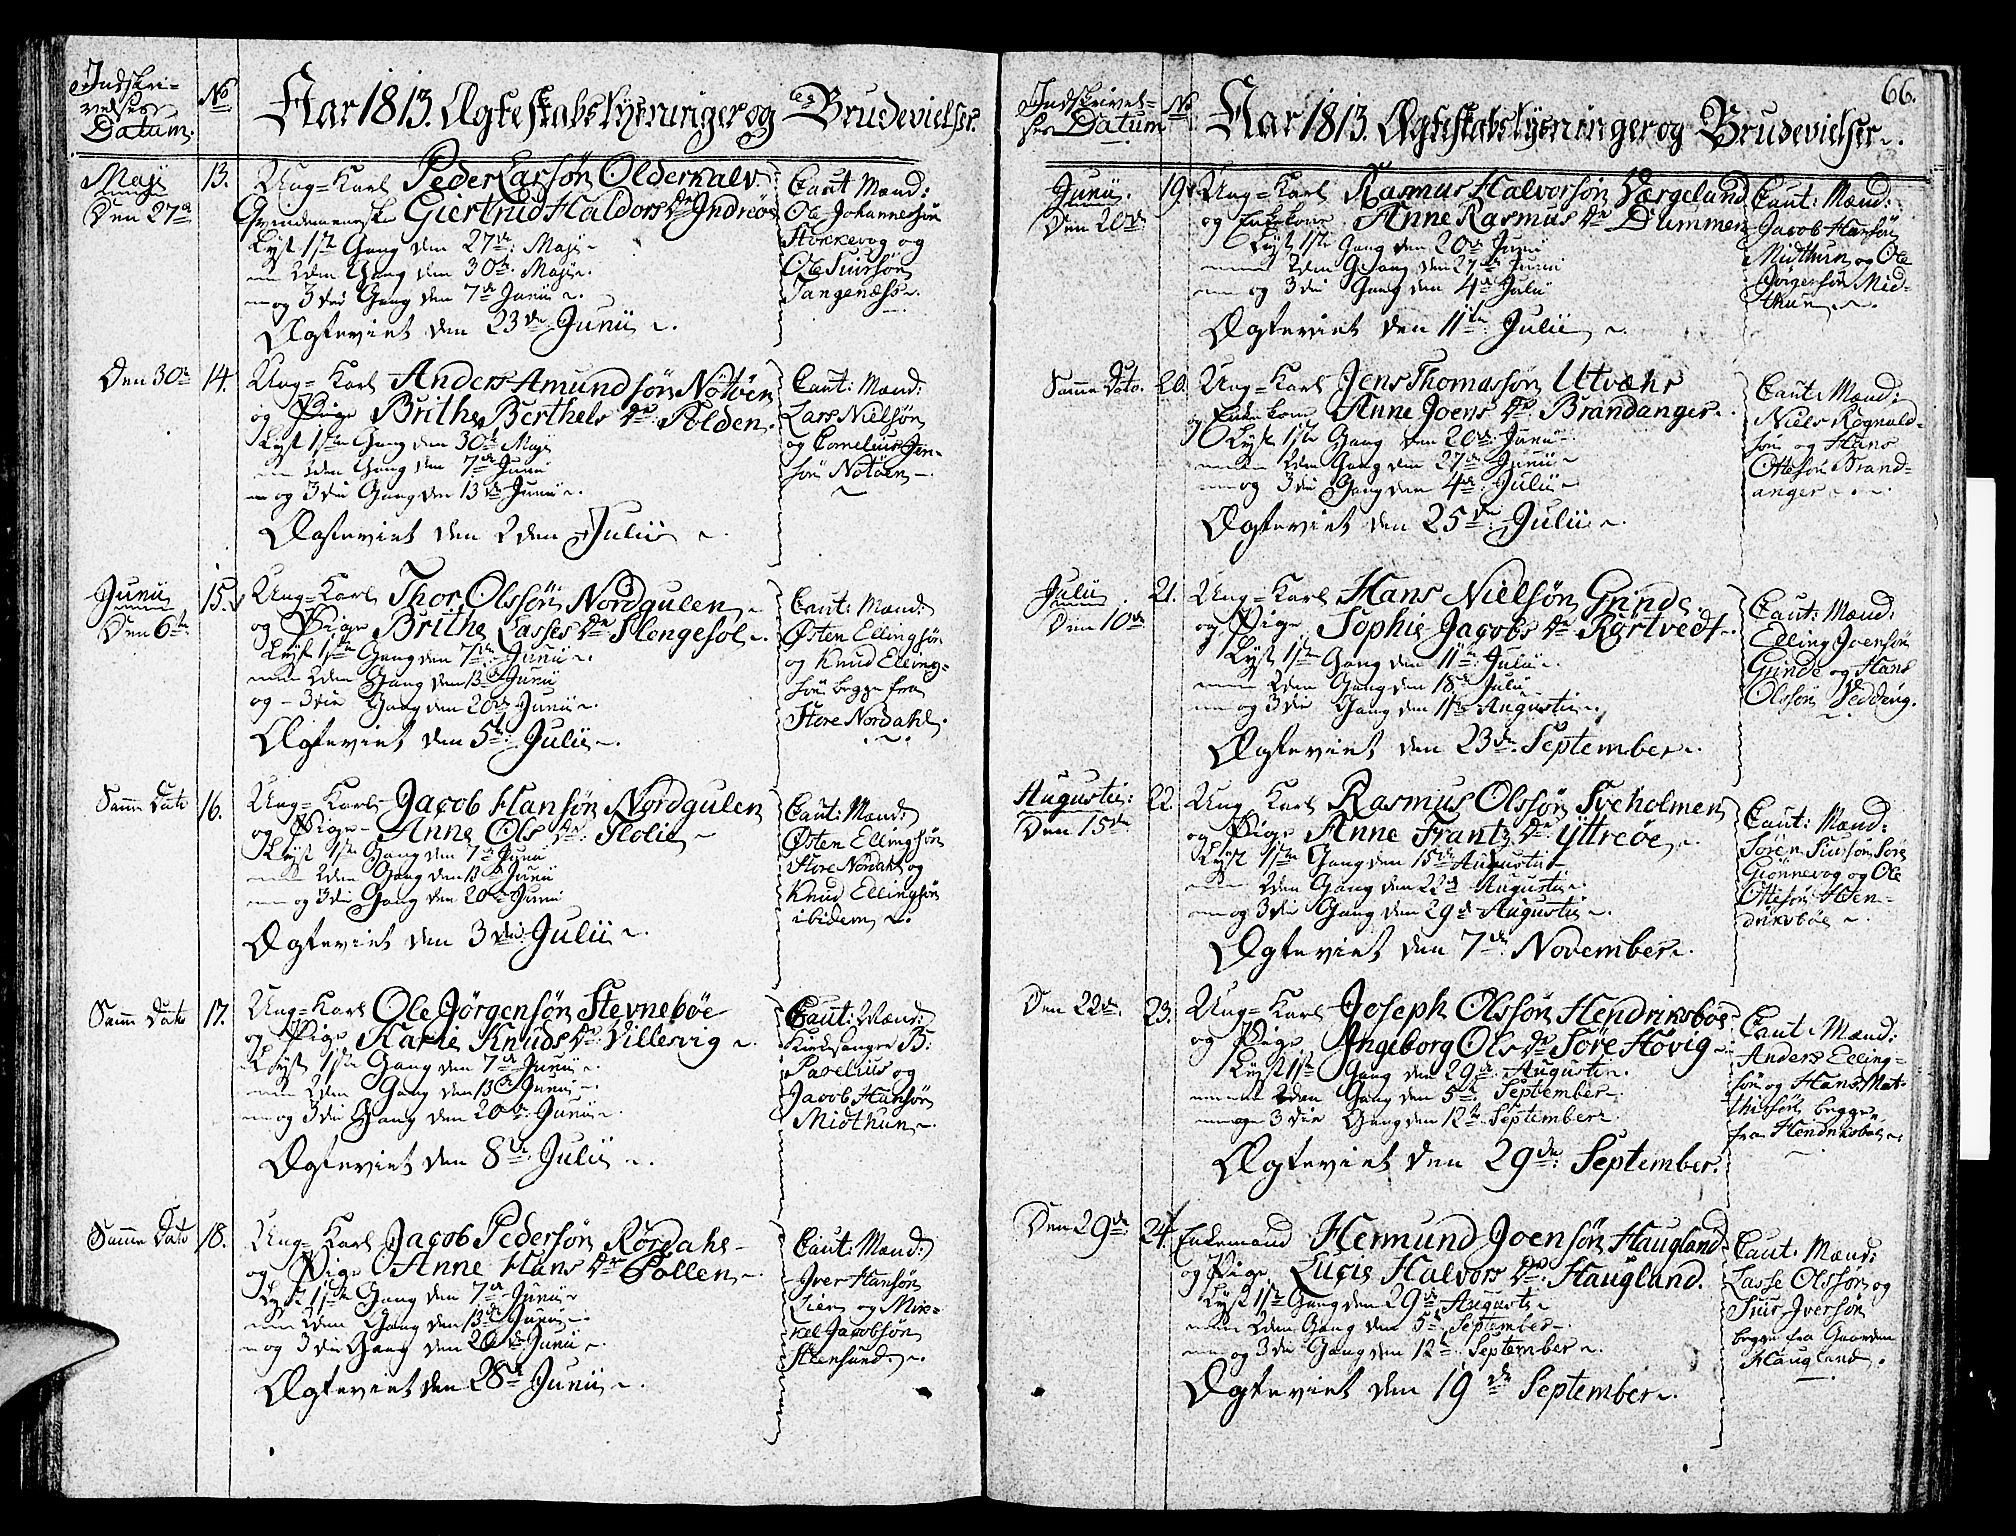 Indskri-
velses
Datum.
No
Aar 1813. Ægteskabs Lysninger og Brudevielser.
Maji
Den 27de
13.
Ung-Karl Peder Larsön Olderkalv.
Qvindemenneske Giertrud Haldors Dr Indreöe
Lyst 1ste Gang den 27de Maji
2den Gang den 30te Maji
og 3die Gang den 7de Junii
Ægteviet den 23de Junii
Caut Mænd:
Ole Johannessön
Stokkevog og
Ole Siursön
Tangenæss
Den 30te
14.
Ung-Karl Anders Amundsön Notöen
og Pige Brithe Berthels Dr Polden.
Lyst 1ste Gang den 30te Maji
2den Gang den 7de Junii
og 3die Gang den 13de Junii
Ægteviet den 2den Julii
Caut: Mænd:
Lars Nielsön
og Cornelius Jen-
sön Notöen
Junii
Den 6te
15.
Ung-Karl Thor Olssön Nordgulen
og Pige Brithe Lasses Dr Slengesol
Lyst 1ste Gang den 7de Junii
2den Gang den 13de Junii
og 3die Gang den 20de Junii
Ægteviet den 5te Julii
Caut: Mænd:
Østen Ellingsön
og Knud Elling-
sön begge fra
Store Nordahl.
Samme Dato
16.
Ung-Karl Jacob Hansön Nordgulen
og Pige Anne Ols Dr Flolie
Lyst 1ste Gang den 7de Junii
2den Gang den 13de Junii
og 3die Gang den 20de Junii
Ægteviet den 3die Julii
Caut: Mænd:
Østen Ellingsön
Store Nordahl og
Knud Ellingsön
ibidem
Samme Dato
17.
Ung-Karl Ole Jörgensön Stevneböe
og Pige Karie Knuds Dr Villesvig
Lyst 1ste Gang den 7de Junii
2den Gang den 13de Junii
og 3die Gang den 20de Junii
Ægteviet den 8de Julii
Caut: Mænd:
Kirkesanger B:
Parelius og
Jacob Hansön
Midthun
Samme Dato
18.
Ung-Karl Jacob Pedersön Rördahl
og Pige Anne Hans Dr Pollen
Lyst 1ste Gang den 7de Junii
2den Gang den 13de Junii
og 3die Gang den 20de Junii
Ægteviet den 28de Junii
Caut: Mænd:
Iver Hansön
Lien og Mik-
kel Jacobsön
Steensund.
66.
Indskrivel-
ses Datum
No
Aar 1813. Ægteskabs Lysninger og Brudevielser.
Junii.
Den 20de
19.
Ung-Karl Rasmus Halvorsön Værgeland
og Enkekone Anne Rasmus Dr Dummen
Lyst 1ste Gang den 20de Junii
2den Gang den 27de Junii
og 3die Gang den 4de Julii
Ægteviet den 11te Julii
Caut: Mænd:
Jacob Hansön
Midthun og Ole
Jörgensön Mid-
thun
Samme Dato.
20.
Ung-Karl Jens Thomassön Utvæhr
og Enkekone Anne Joens Dr Brandanger
Lyst 1ste Gang den 20de Junii
2den Gang den 27de Junii
og 3die Gang den 4de Julii
Ægteviet den 25de Julii
Caut: Mænd:
Niels Rognald-
sön og Hans
Ottesön Brand-
anger
Julii
Den 10de
21.
Ung-Karl Hans Nielsön Grinde
og Pige Sophie Jacobs Dr Rörtvedt
Lyst 1ste Gang den 11te Julii
2den Gang den 18de Julii
og 3die Gang den 1ste Augustii
Ægteviet den 23de September
Caut: Mænd:
Elling Joensön
Grinde og Hans
Olssön Veddeng.
Augustii:
Den 15de
22.
Ung Karl Rasmus Olssön Sveholmen
og Pige Anne Frantz Dr Yttreöe
Lyst 1ste Gang den 15de Augustii
2den Gang den 22de Augustii
og 3die Gang den 29de Augustii
Ægteviet den 7de November
Caut: Mænd:
Sören Siursön Söre
Giönnevog og Ole
Ottesön Hen-
driksböe
Den 22de
23.
Ung-Karl Joseph Olssön Hendriksböe
og Pige Ingeborg Ols Dr Söre Hövig
Lyst 1ste Gang den 29de Augustii
2den Gang den 5te September
og 3die Gang den 12te September
Ægteviet den 29de September.
Caut: Mænd:
Anders Elling-
sön og Hans Mat-
thisön begge
fra Hendriksböe
Den 29de
24.
Enkemand Hermund Joensön Haugland
og Pige Lucie Halvors Dr Haugland.
Lyst 1ste Gang den 29de Augustii
2den Gang den 5te September
og 3die Gang den 12te September
Ægteviet den 19de September
Caut: Mænd:
Lasse Olssön og
Siur Iversön
begge fra Gaarden
Haugland.